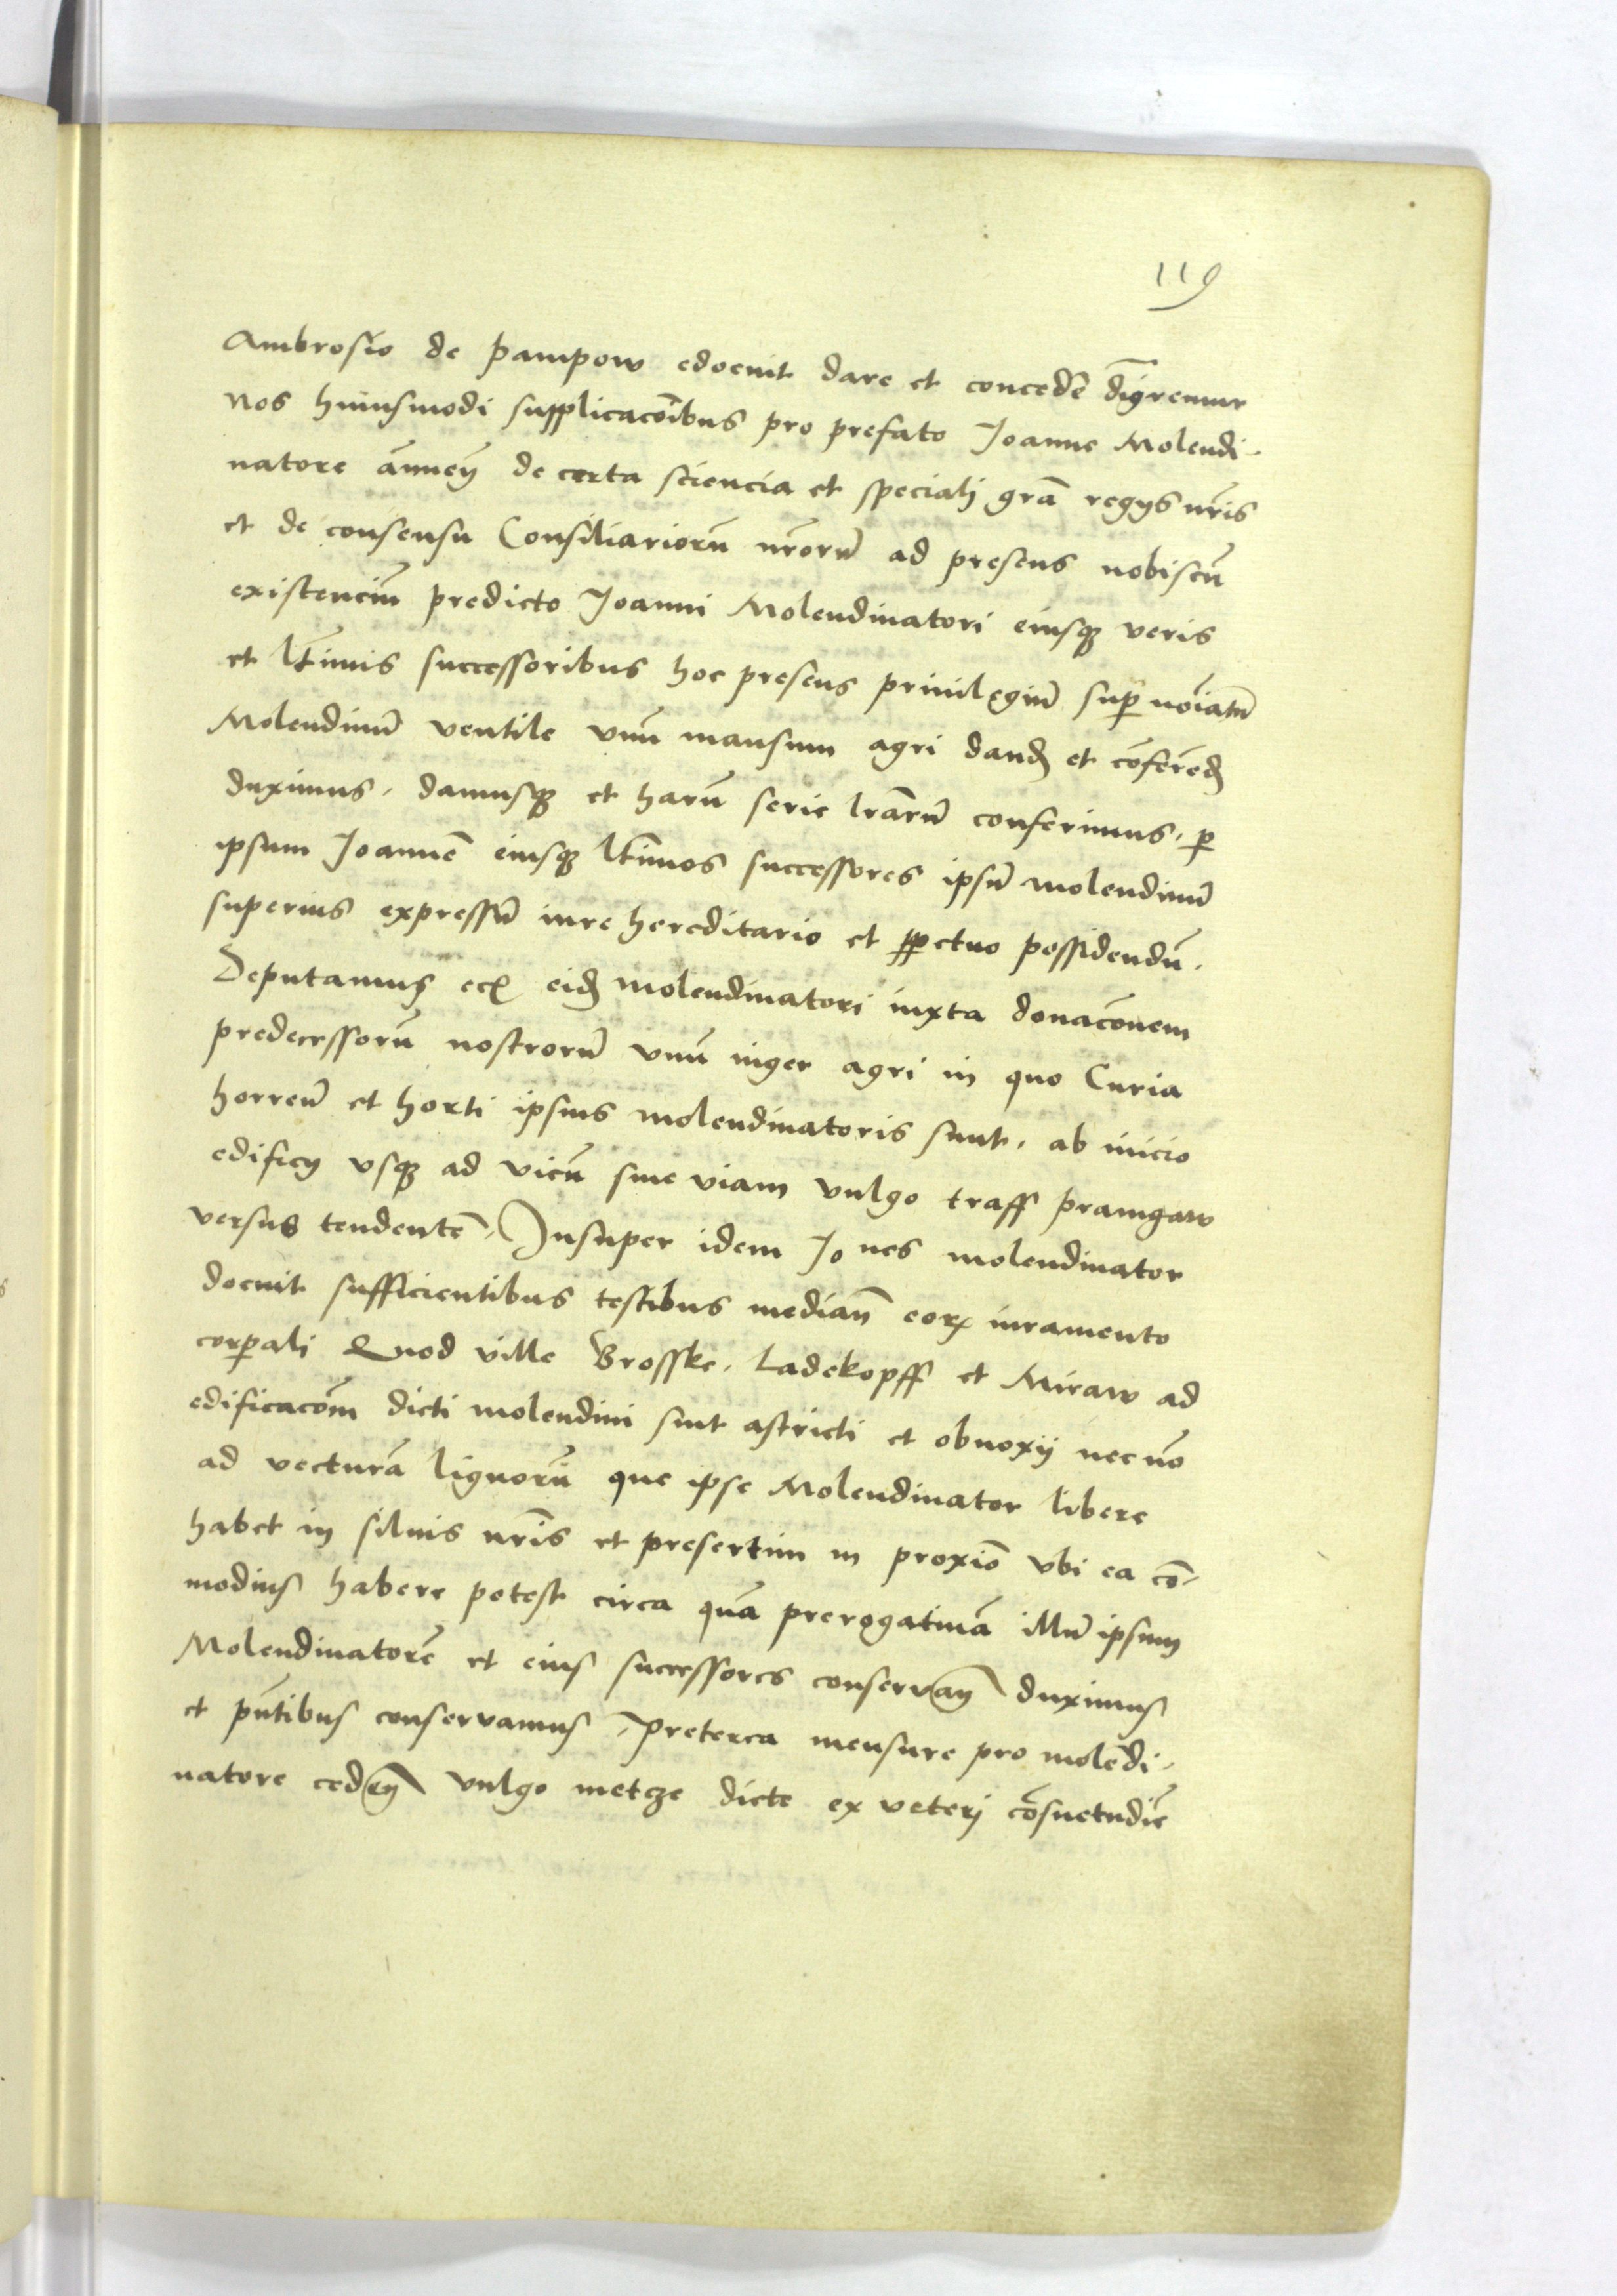 119
Ambrosio de pampow edocuit dare et concedē dīgremur
Nos huiusmodi supplicacōibus pro prefato Joanne Molendi-
natore annuen̄ de certa sciencia et speciali grā regijs nrīs
et de consensu Consiliariorū nrōrū ad presens nobiscū
existenciū predicto Joanni Molendinatori eiusqꝫ veris
et ltīmis successoribus hoc presens priuilegiū suꝑ noīatū
Molendinū ventile vnū mansum agri dand̄ et cōferēd̄
duximus. damusqꝫ et harū serie lrārū conferimus. ꝑ
ipsum Joannē eiusqꝫ ltīmos successores ipsū molendinū
superius expressū iure hereditario et ꝑpetuo possidendū.
Deputamus ecꝫ eid̄ molendinatori iuxta donacōnem
predecessorū nostrorū vnū iuger agri in quo Curia
horreū et horti ipsius molendinatoris sunt. ab inicio
edificij vsqꝫ ad vicū siue viam vulgo traff pramgaw
versus tendentē. Insuper idem Jo nes molendinator
docuit sufficientibus testibus median̄ eorꝝ iuramento
corꝑali Quod ville Brosske. Ladekopff et Miraw ad
edificacōm dicti molendini sint astricti et obnoxij nec nō
ad vecturā lignorū que ipse Molendinator libere
habet in siluis nrīs et presertim in proxīo vbi ea cō-
modius habere potest circa quā prerogatiuā illū ipsum
Molendinatorē et eius successores conseruan̄ duximus
et pn̄tibus conservamus. Preterea mensure pro molēdi-
natore ceden̄ vulgo metcze dicte ex veteri cōsuetudīe